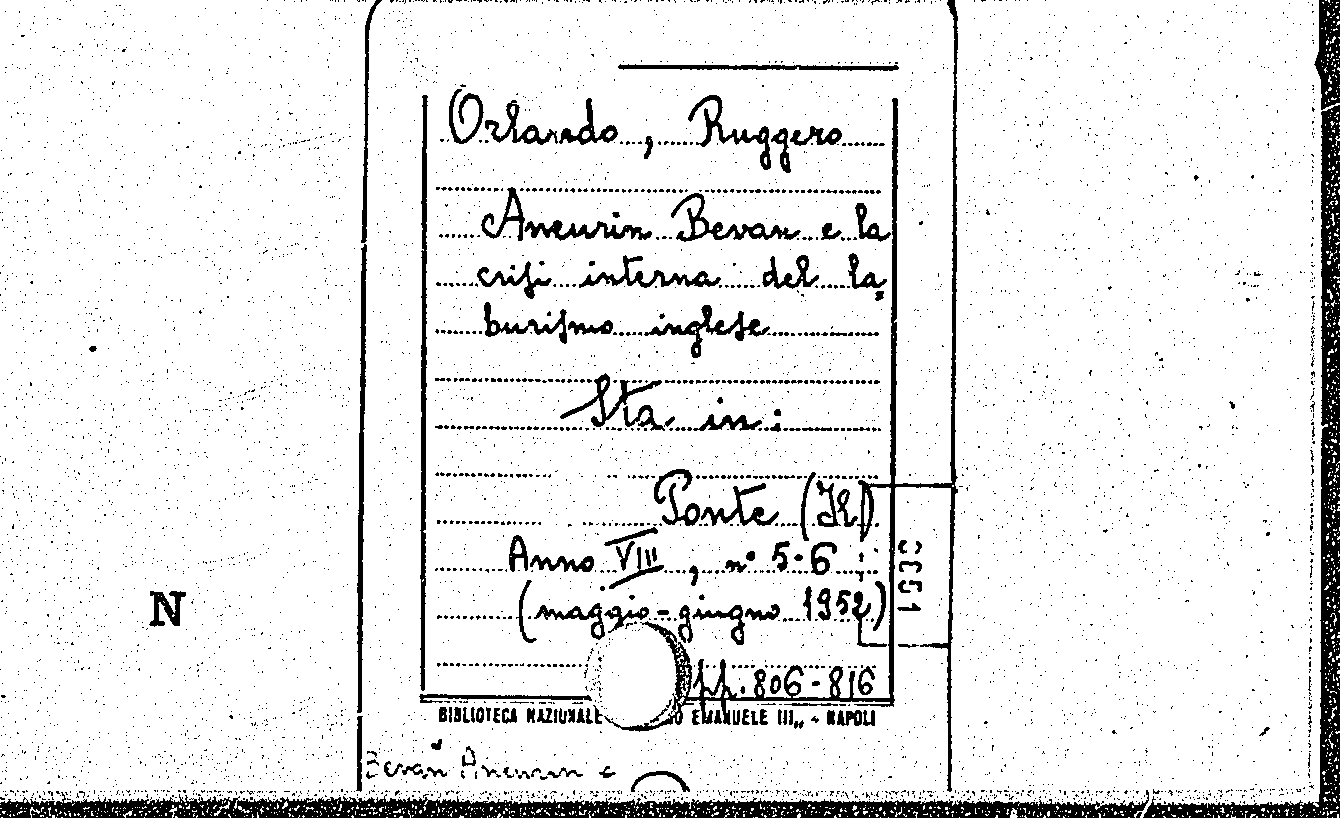 Orlando, Ruggero
Aneurin Bevan e la
crisi interna del la=
burismo inglese
Sta in:
Ponte (Il)
Anno VIII, n° 5-6
(maggio-giugno 1952)
pp. 806-816
BIBLIOTECA NAZIONALE EMANUELE III„ - NAPOLI
Bevan Aneurin e
N